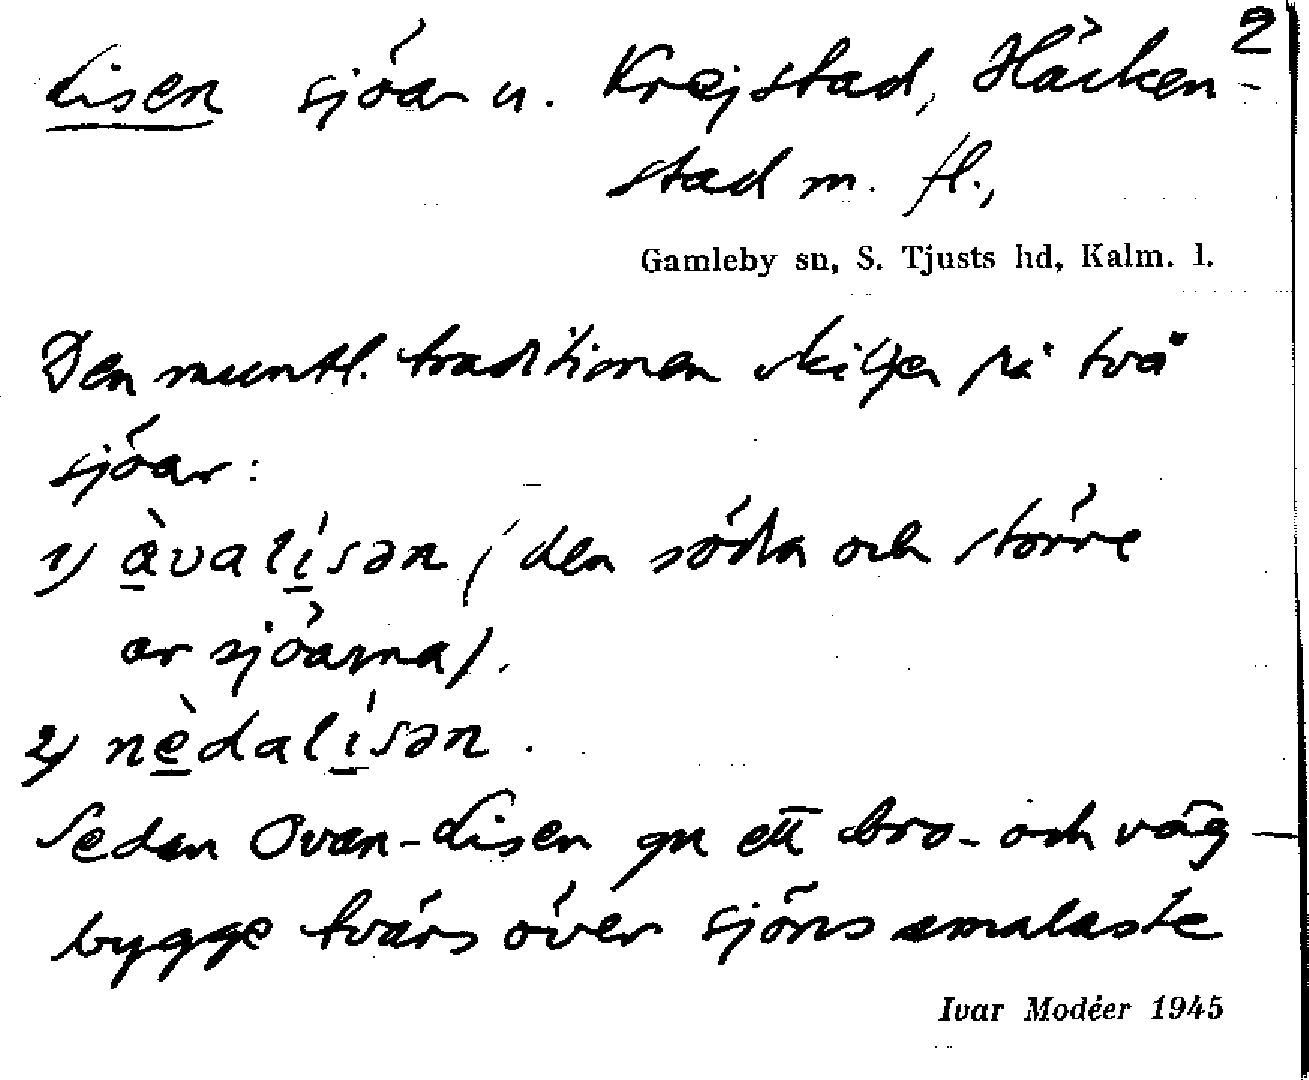 2
Lisen sjöar u. Krejstad, Häcken-
stad m. fl.,
Gamleby sn, S. Tjusts hd, Kalm. l.
Den muntl. traditionen skiljer på två
sjöar:
1) àvalísən (den södra och större
av sjöarna).
2) nèdalísən.
Sedan Ovan-Lisen gn ett bro- och väg-
bygge tvärs över sjöns smalaste
Ivar Modéer 1945